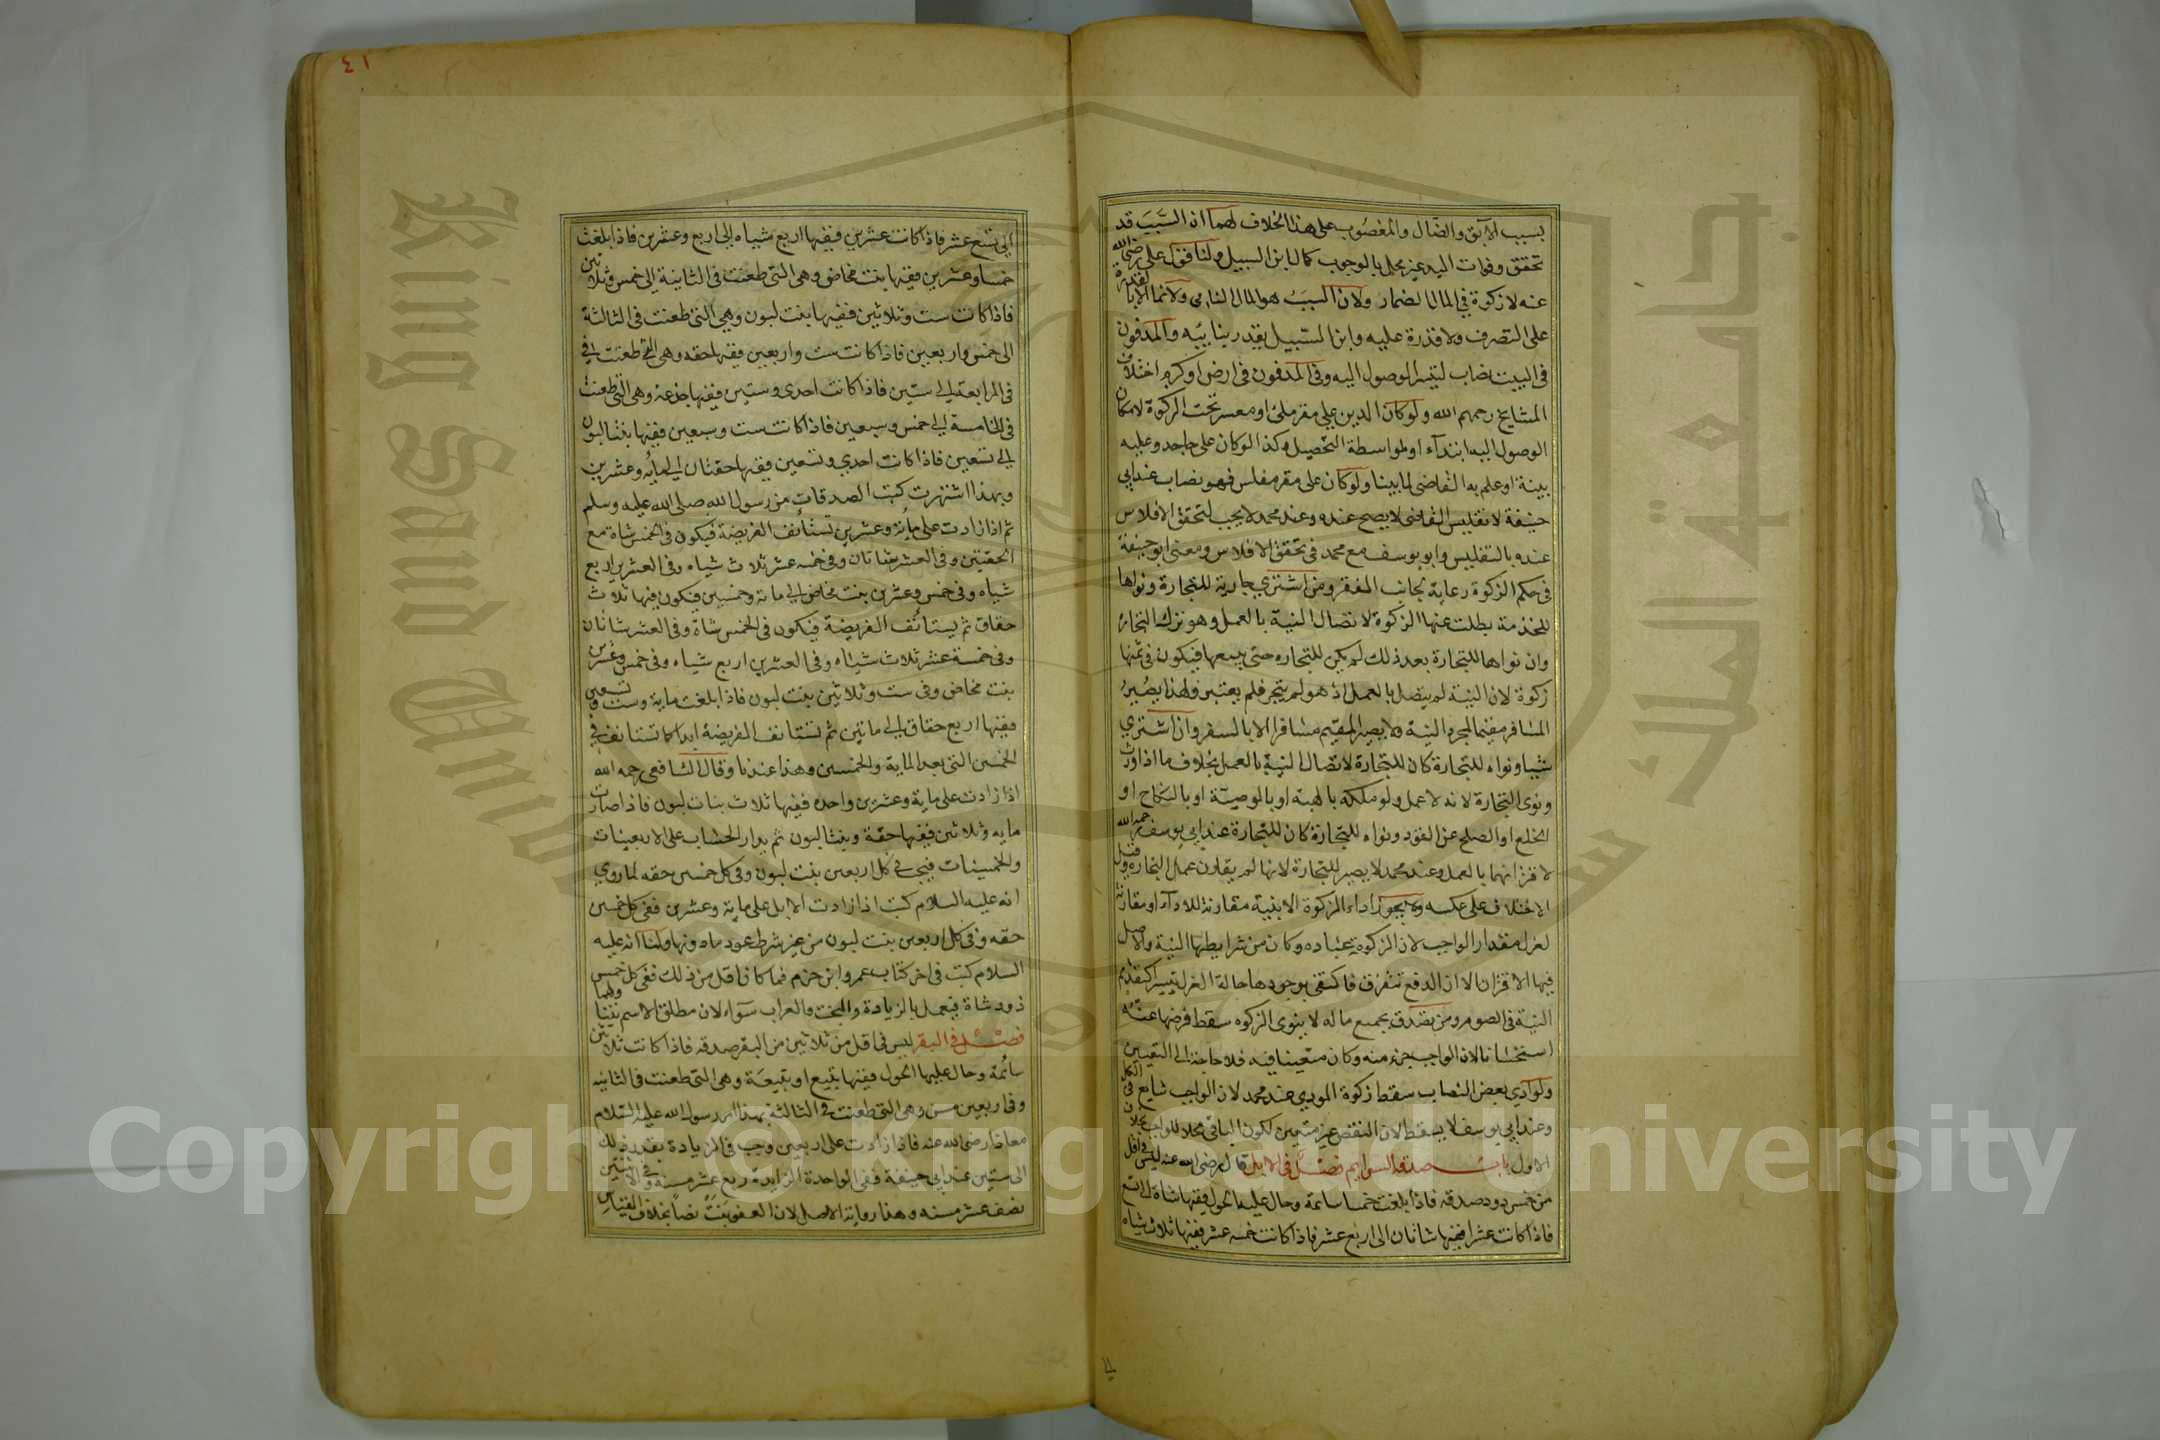 بسبب الآبق والضال والمغصوب على هذا الخلاف لهما ان السبب قد
تحقق وفوات اليد غير مخل بالوجوب كمال ابن السبيل ولنا قول على رضى الله
عنه لا زكوة في المال الضمار ولان السبب هو المال النامى ولا نما الا بالقدرة
على التصرف ولا قدرة عليه وابن السبيل يقدر بنايبه والمدفون
في البيت نصاب لتيسر الوصول اليه وفي المدفون في ارض او كرم اختلاف
المشايخ رحمهم الله ولو كان الدين على مقر ملئ او معسر تجب الزكوة لامكان
الوصول اليه ابتداء او بواسطة التحصيل وكذا لو كان على جاحد وعليه
بينة او علم به القاضى لما بينا ولو كان على مقر مفلس فهو نصاب عند ابي
حنيفة لان تفليس القاضى لا يصح عنده وعند محمد لا يجب لتحقق الافلاس
عنده بالتفليس وابو يوسف مع محمد في تحقق الافلاس ومع ابي حنيفة
في حكم الزكوة رعاية لجانب الفقر ومن اشترى جارية للتجارة ونواها
للخدمة بطلت عنها الزكوة لاتصال النية بالعمل وهو ترك التجارة
وان نواها للتجارة بعد ذلك لم يكن للتجارة حتى يبيعها فيكون في ثمنها
زكوة لان النية لم يتصل بالعمل اذ هو لم يتجر فلم يعتبر ولهذا يصير
المسافر مقيما بمجرد النية ولا يصير المقيم مسافرا الا بالسفر وان اشترى
شيا ونواه للتجارة كان للتجارة لاتصال النية بالعمل بخلاف ما اذا ورث
ونوى التجارة لانه لا عمل ولو ملكه بالهبة او بالوصية او بالنكاح او
الخلع او الصلح عن القود ونواه للتجارة كان للتجارة عند ابي يوسف رحمه الله
لاقترانهما بالعمل وعند محمد لا يصير للتجارة لانها لم يقارن عمل التجارة وقيل
الاختلاف على عكسه ولا يجوز اداء الزكوة الا بنية مقارنة للاداء او مقارنة
لعزل مقدار الواجب لان الزكوة عبادة وكان من شرايطها النية والاصل
فيها الاقتران الا ان الدفع يتفرق فاكتفى بوجودها حالة العزل تيسرا كتقديم
النية في الصوم ومن تصدق بجميع ماله لا ينوى الزكوة سقط فرضها عنه
استحسانا لان الواجب جزء منه وكان متعينا فيه فلا حاجة الى التعيين
ولو ادى بعض النصاب سقط زكوة المودى عند محمد لان الواجب شايع في الكل
وعند ابي يوسف لا يسقط لان البعض غير متعين لكون الباقي محلا للواجب بخلاف
الاول باب صدقة السوايم فصل في الابل قال رضى الله عنه ليس في اقل
من خمس ذود صدقه فاذا بلغت خمسا سائمة وحال عليها الحول ففيها شاة الى تسع
فاذا كانت عشرا ففيها شاتان الى اربع عشر فاذا كانت خمسه عشر ففيها ثلاث شياه
٤١
الى تسع عشر فاذا كانت عشرين ففيها اربع شياه الى اربع وعشرين فاذا بلغت
خمسا وعشرين ففيها بنت مخاض وهى التى طعنت في الثانية الى خمس وثلاثين
فاذا كانت ست وثلاثين ففيها بنت لبون وهى التى طعنت في الثالثة
الى خمس واربعين فاذا كانت ست واربعين ففيها حقه وهى التى طعنت في
في الرابعة الى ستين فاذا كانت احدى وستين ففيها جذعة وهى التى طعنت
في الخامسة الى خمس وسبعين فاذا كانت ست وسبعين ففيها بنتا لبون
الى تسعين فاذا كانت احدى وتسعين ففيها حقتان الى مايه وعشرين
وبهذا اشتهرت كتب الصدقات من رسول الله صلى الله عليه وسلم
ثم اذا زادت على مائة وعشرين تستأنف الفريضة فيكون في الخمس شاة مع
الحقتين وفي العشر شاتان وفي خمسه عشر ثلاث شياه وفي العشرين اربع
شياه وفي خمس وعشرين بنت مخاض الى مائة وخمسين فيكون فيها ثلاث
حقاق ثم يستأنف الفريضة فيكون في الخمس شاة وفي العشر شاتان
وفي خمسة عشر ثلاث شياه وفي العشرين اربع شياه وفي خمس وعشرين
بنت مخاض وفي ست وثلاثين بنت لبون فاذا بلغت ماية وست وتسعين
ففيها اربع حقاق الى ماتين ثم تستانف الفريضة ابدا كما تستانف في
الخمسين التى بعد الماية والخمسين وهذا عندنا وقال الشافعى رحمه الله
اذا زادت على ماية وعشرين واحده ففيها ثلاث بنات لبون فاذا صارت
مايه وثلاثين ففيها حقة وبنتا لبون ثم يدار الحساب على الاربعينات
والخمسينات فيجب في كل اربعين بنت لبون وفي كل خمسين حقه لما روي
انه عليه السلام كتب اذا زادت الابل على ماية وعشرين ففى كل خمسين
حقه وفي كل اربعين بنت لبون من غير شرط عود ما دونها ولنا انه عليه
السلام كتب في اخر كتاب عمرو ابن حزم فما كان اقل من ذلك ففى كل خمس
ذود شاة فيعمل بالزيادة والبخت والعراب سواء لان مطلق الاسم يتناولهما
فصل في البقر ليس في اقل من ثلاثين من البقر صدقه فاذا كانت ثلاثين
سائمة وحال عليها الحول ففيها تبيع او تبيعة وهى التى طعنت في الثانيه
وفي اربعين مسن وهى التى طعنت في الثالثة بهذا امر رسول الله عليه السلام
معاذا رضى الله عنه فاذا زادت على اربعين وجب في الزيادة بقدر ذلك
الى ستين عند ابي حنيفة ففى الواحدة الزايدة ربع عشر مسنه وفي الاثنتين
نصف عشر مسنه وهذا رواية الاصل لان العفو يثبت نصا بخلاف القياس
King Saud University
جامعة الملك سعود
Copyright © King Saud University